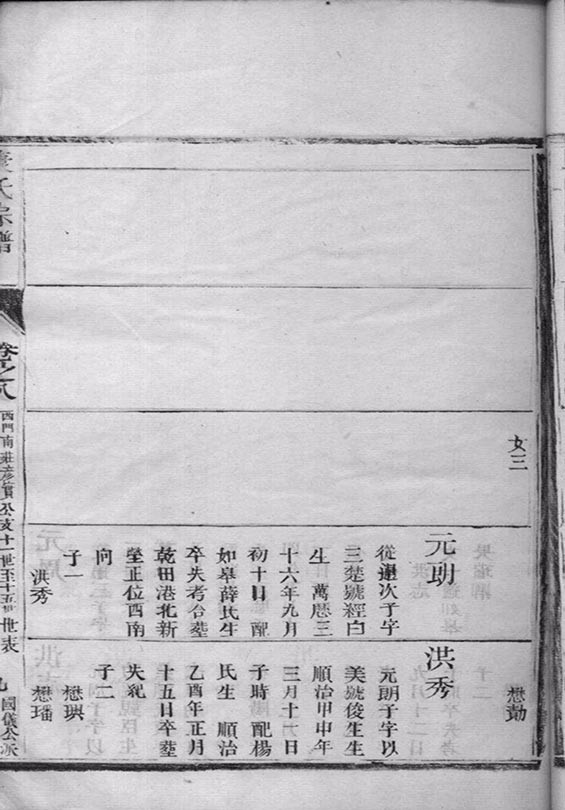 女三
懋
元朗
從遜次子字
三楚號經白
生 萬曆三
十六年九月
初十日 配
如皋薛氏生
卒失考合塟
乾田港北新
塋正位酉南
向
子一
洪秀
洪秀
元朗子字以
美號俊生生
順治甲申年
三月十日
子時 配楊
氏生 順治
乙酉年正月
十五日卒塟
失紀
子二
懋珙
懋璠
氏宗譜
卷之八
西門南莊彥賓公支十一世至十五世世表
國儀公派